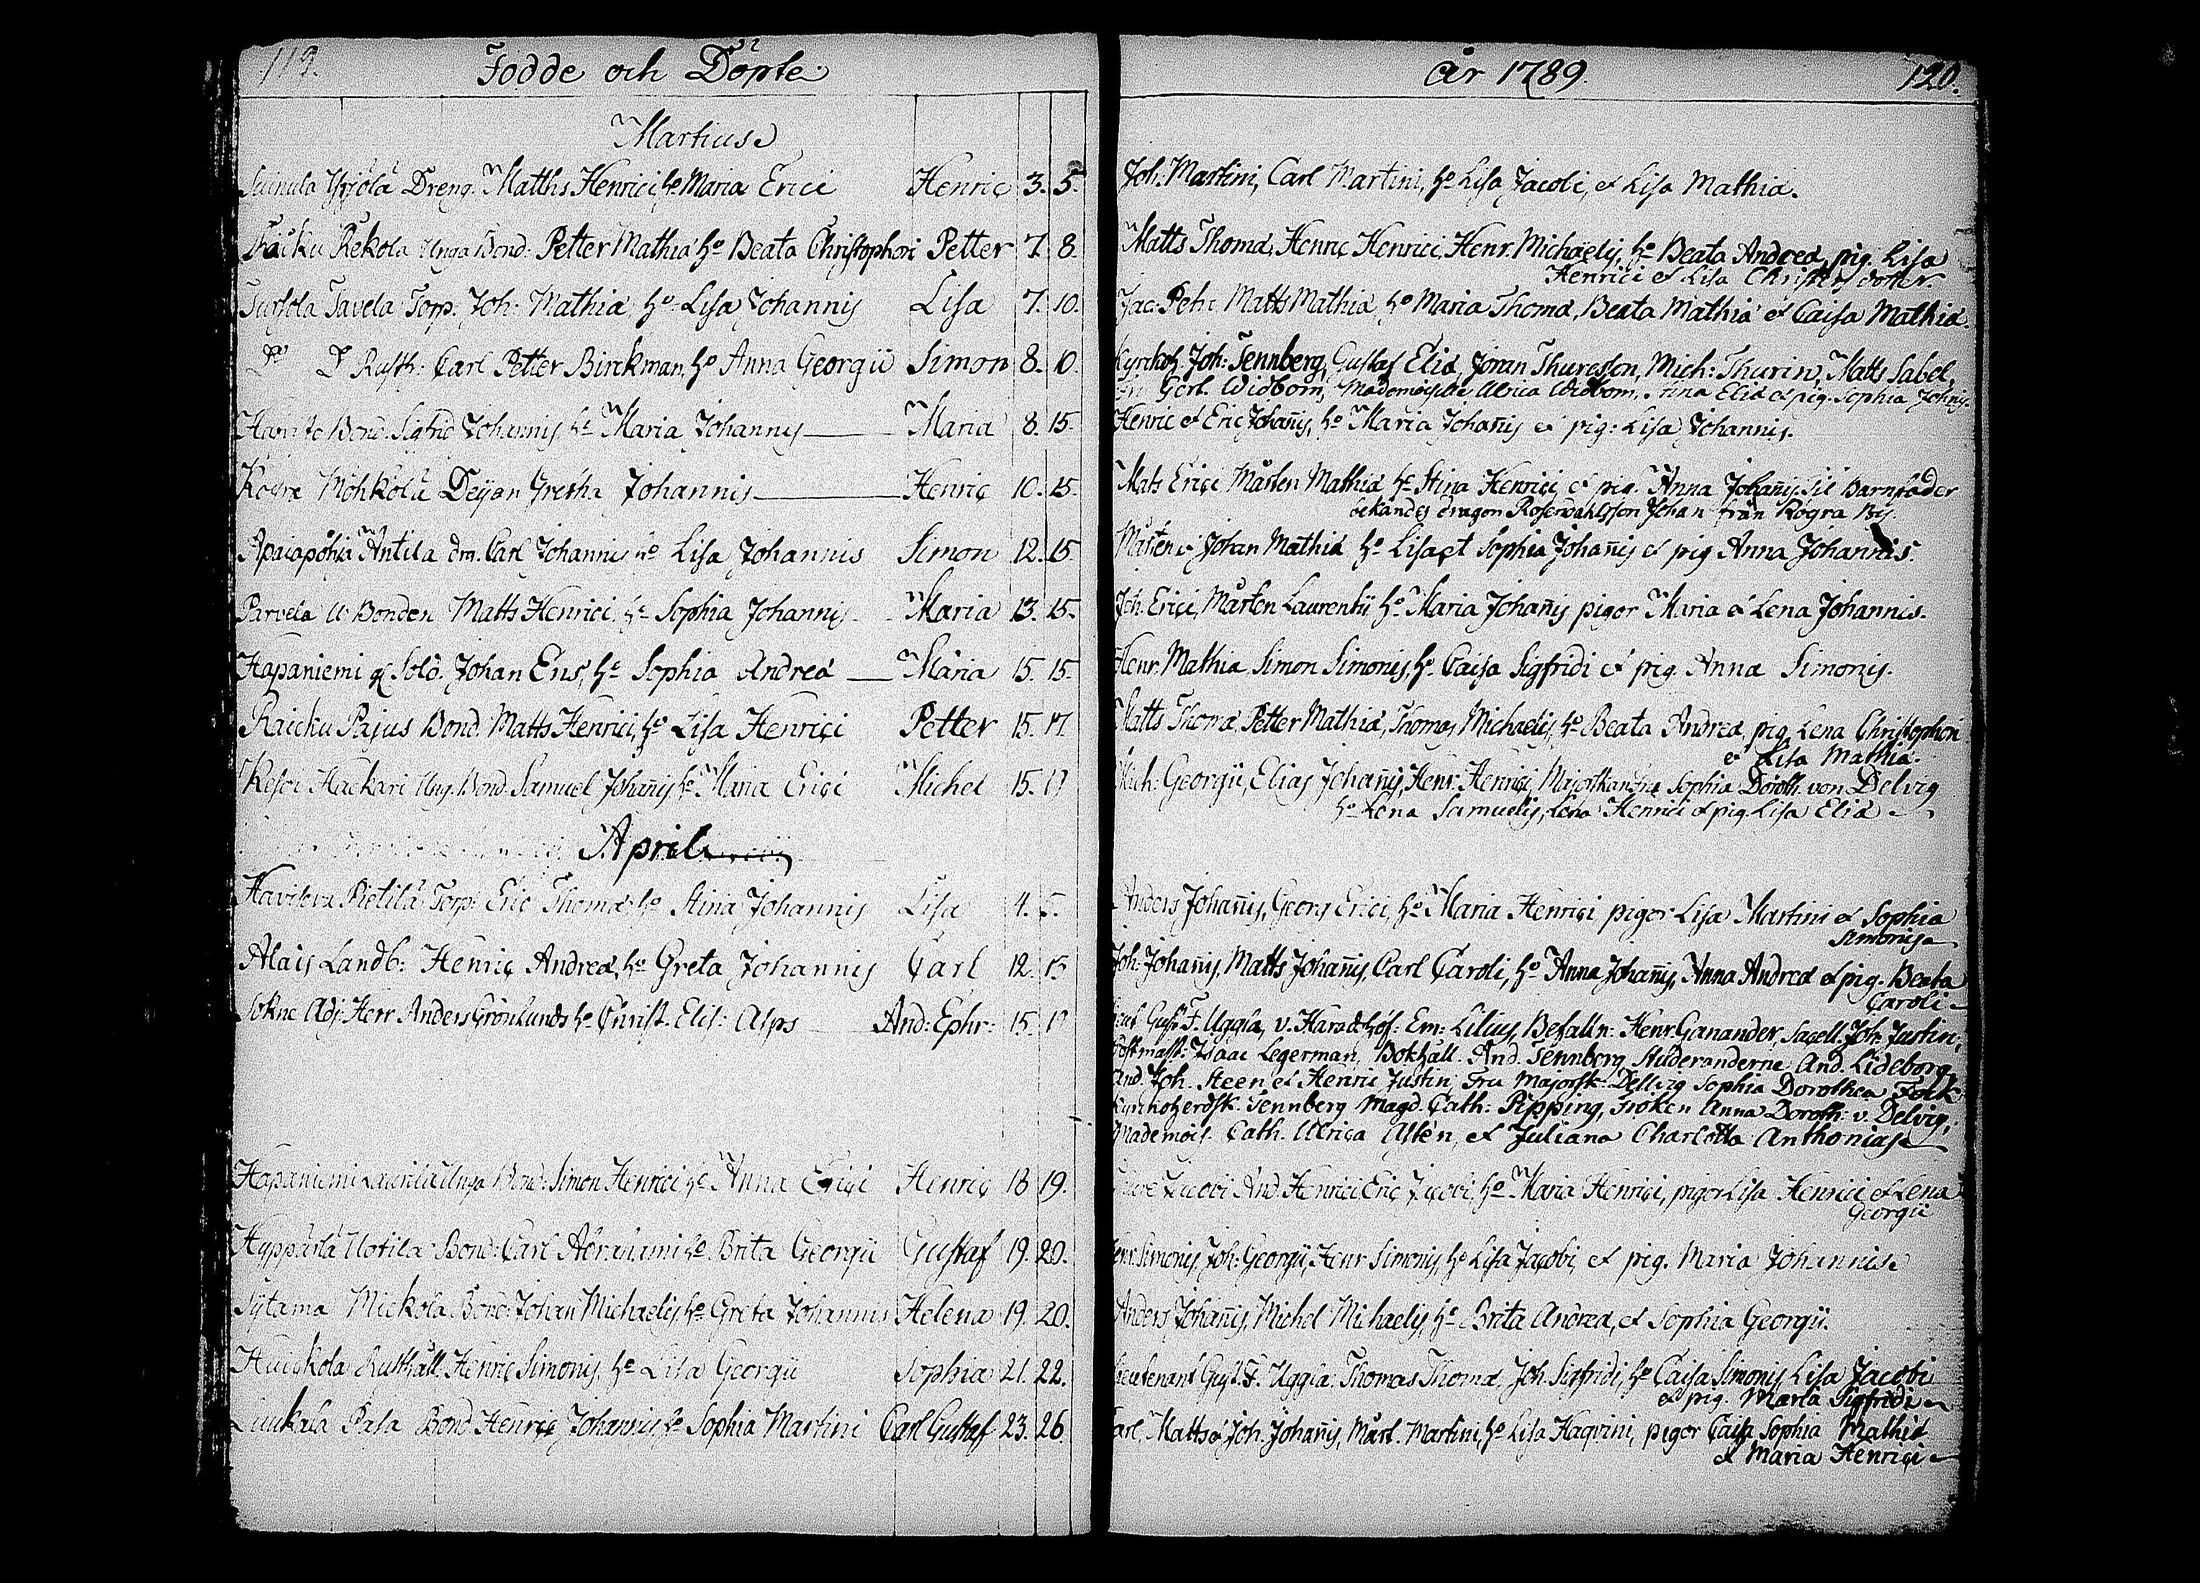 119. Födde och Döpte
Martius
Yrjölä Dreng. Matths Henrici, h:o Maria Erici Henric 3. 5.
Räcku Rekola Unga Bond: Petter Mathiæ h:o Beata Christophori Petter 7. 8.
Tursola Tavela Torp. Joh: Mathiæ, h:o Lisa Johannis Lisa 7. 10.
D:o D:o Rusth: Carl Petter Birckman, h:o Anna Georgii Simon 8. 10.
Bond. Sigfrid Johannis h:o Maria Johannis Maria 8. 15.
Kogra Möhkölä Deÿan Gretha Johannis Henric 10. 15.
Antila dra. Carl Johannis h:o Lisa Johannis Simon 12. 15.
Parvela U Bonden Matts Henrici, h:o Sophia Johannis Maria 13. 15.
Hapaniemi g Sold. Johan Ens, h:o Sophia Andreæ Maria 15. 15.
Raicku Pajus Bond. Matts Henrici, h:o Lisa Henrici Petter 15. 17.
Hackari Ung. Bond. Samuel Johañis h:o Maria Erici Michel 15. 17
April
Pietilä Torp: Eric Thomæ h:o Stina Johannis Lisa 4. 5.
Alais Landb: Henric Andreæ, h:o Greta Johannis Carl 12. 13
Sokne Adj: Herr Anders Grönlunds h:o Christ. Elis: Alps And: Ephr: 15. 17
Hapaniemi Laurila Unga Bond: Simon Henrici h:o Anna Erici Henric 18 19.
Hyppärlä Uotila Bond: Carl Abrahami h:o Brita Georgii Gustaf 19. 20.
Sÿtama Mickola Bond: Johan Michaelis, h:o Greta Johannis Helena 19. 20.
Huiskola Rusthåll. Henric Simonis, h:o Lisa Georgii Sophia 21. 22.
Luukala Pasa Bond Henric Johannis, h:o Sophia Martini Carl Gustaf 23. 26.
år 1789. 120.
Joh. Martini, Carl Martini, h:o Lisa Jacobi, et Lisa Mathiæ.
Matts Thomæ, Henric Henrici, Henr. Michaelis, h:o Beata Andreæ, pig. Lisa
Henrici et Lisa Christers dotter.
Jac: Petri Matts Mathiæ, h:o Maria Thomæ, Beata Mathiæ et Caisa Mathiæ.
Kyrkoh. Joh: Tennberg, Gustaf Eliæ, Jöran Thuresson, Mich: Thurin, Matts Sabel,
Gerl. Widbom, Mademoiselle Ulrica Widbom, Stina Eliæ et pig. Sophia Johñis.
Henric et Eric Johañis, h:o Maria Johañis et pig: Lisa Johannis.
Mats Erici Mårten Mathiæ h:o Stina Henrici, et pig. Anna Johañis. til Barnfader
bekändes dragon Rosenvahlsson Johan från Kogra By.
Mårten et Johan Mathiæ h:o Lisa et Sophia Johañis et pig Anna Johannis.
Joh. Erici, Mårten Laurentii h:o Maria Johañis pigor Maria et Lena Johannis.
Henr. Mathiæ Simon Simonis, h:o Caisa Sigfridi et pig. Anna Simonis.
Matts Thomæ, Petter Mathiæ, Thomas Michaelis, h:o Beata Andreæ, pig. Lena Christophori
et Lisa Mathiæ.
Mich: Georgii, Elias Johañis, Henr. Henrici, Majorskan Fru Sophia Doroth. von Delvig
h:o Lena Samuelis, Lena Henrici et pig. Lisa Eliæ
Anders Johañis, Georg Erici, h:o Maria Henrici pigor Lisa Martini et Sophia
Simonis
Joh: Johañis, Matts Johañis, Carl Caroli, h:o Anna Johañis, Anna Andreæ et pig. Beata
Caroli
Gust: F. Uggla, v. Häradshöf: Em: Lilius, Befalln: Henr Ganander, Sacell. Joh. Justin,
Postmäst: Isaac Legerman, Bokhåll. And. Tennberg, Studeranderne And. Lideborg
And. Joh. Steen et Henric Justin, Fru Majorsk. Dellvig Sophia Dorothea Fock
Kyrckoherdsk. Tennberg Magd. Cath: Pipping, Fröken Anna Doroth: v. Delvig,
Mademois. Cath. Ulrica Alfén, et Juliana Charlotta Anthonias
Jacobi And. Henrici Eric Jacobi, h:o Maria Henrici, pigor Lisa Henrici et Lena
Georgii
Henr. Simonis, Joh: Georgii, Henr Simonis, h:o Lisa Jacobi, et pig. Maria Johannis
Anders Johañis, Michel Michaelis, h:o Brita Andreæ, et Sophia Georgii.
Lieutenant Gust. F. Uggla. Thomas Thomæ, Joh. Sigfridi, h:o Caisa Simonis, Lisa Jacobi
et pig. Maria Sigfridi
Carl, Matts et Joh. Johañis, Mårt. Martini, h:o Lisa Haqvini, pigor Caisa Sophia Mathiæ
et Maria Henrici